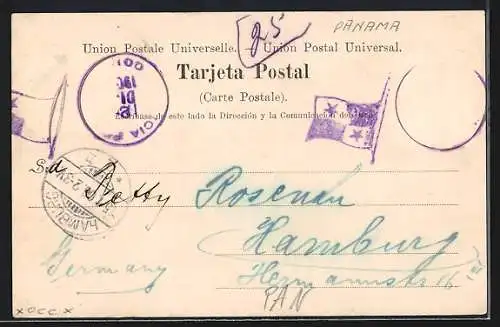 PANAMA
25
Union Postale Universelle. Union Postal Universal.
Tarjeta Postal
(Carte Postale).
de este lado la Dirección y la Comunicación
CIA
HAMBURG
Srta. Jetty Rosenau
Hamburg
Germany
Hermannstr 16
PAN
XOCCX